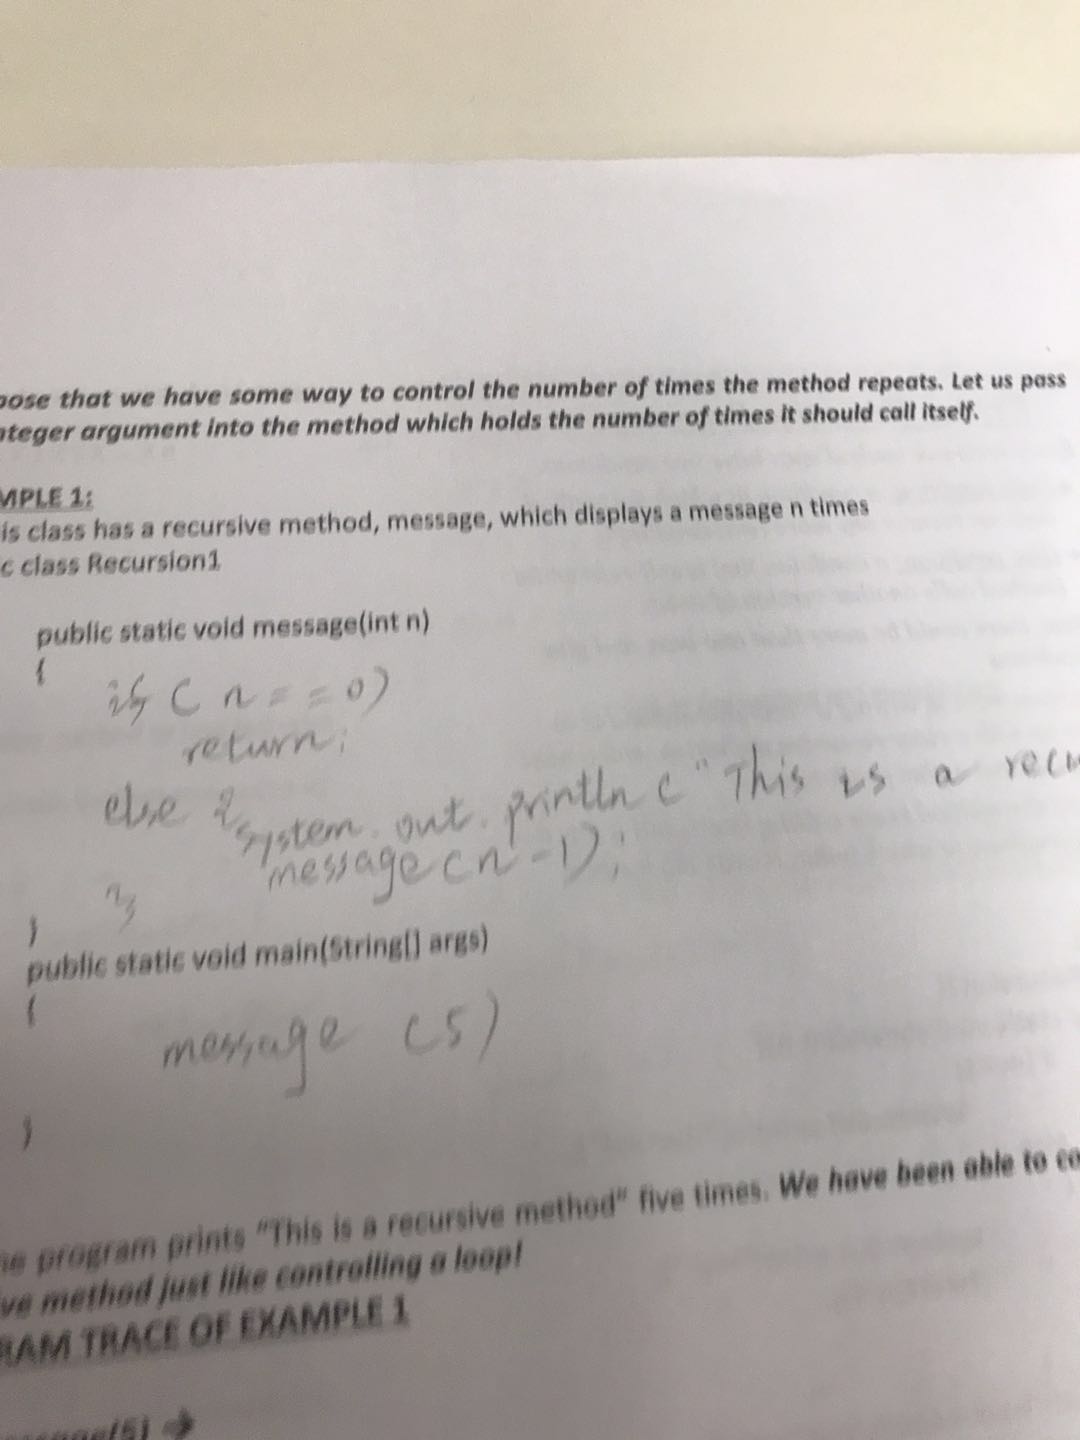 pose that we have some way to control the number of times the method repeats. Let us pass
nteger argument into the method which holds the number of times it should call itself.
MPLE 1:
is class has a recursive method, message, which displays a message n times
c class Recursion1
public static void message(int n)
{
if ( n == 0)
return;
else {
system. out. println ( " This is a recu
message (n-1);
}
}
public static void main(String[] args)
{
message (5)
}
program prints "This is a recursive method" five times. We have been able to co
ve method just like controlling a loop!
RAM TRACE OF EXAMPLE 1